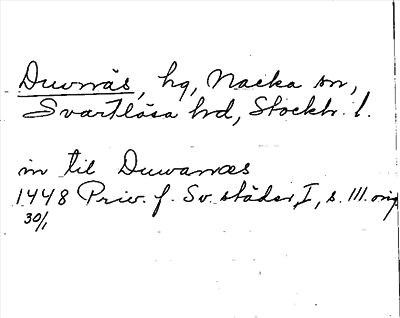 Duvnäs, hg, Nacka sn,
Svartlösa hd, Stockh. l.
in til Duwanæs
1448 Priv. f. Sv. städer, I, s. 111. orig
30/1